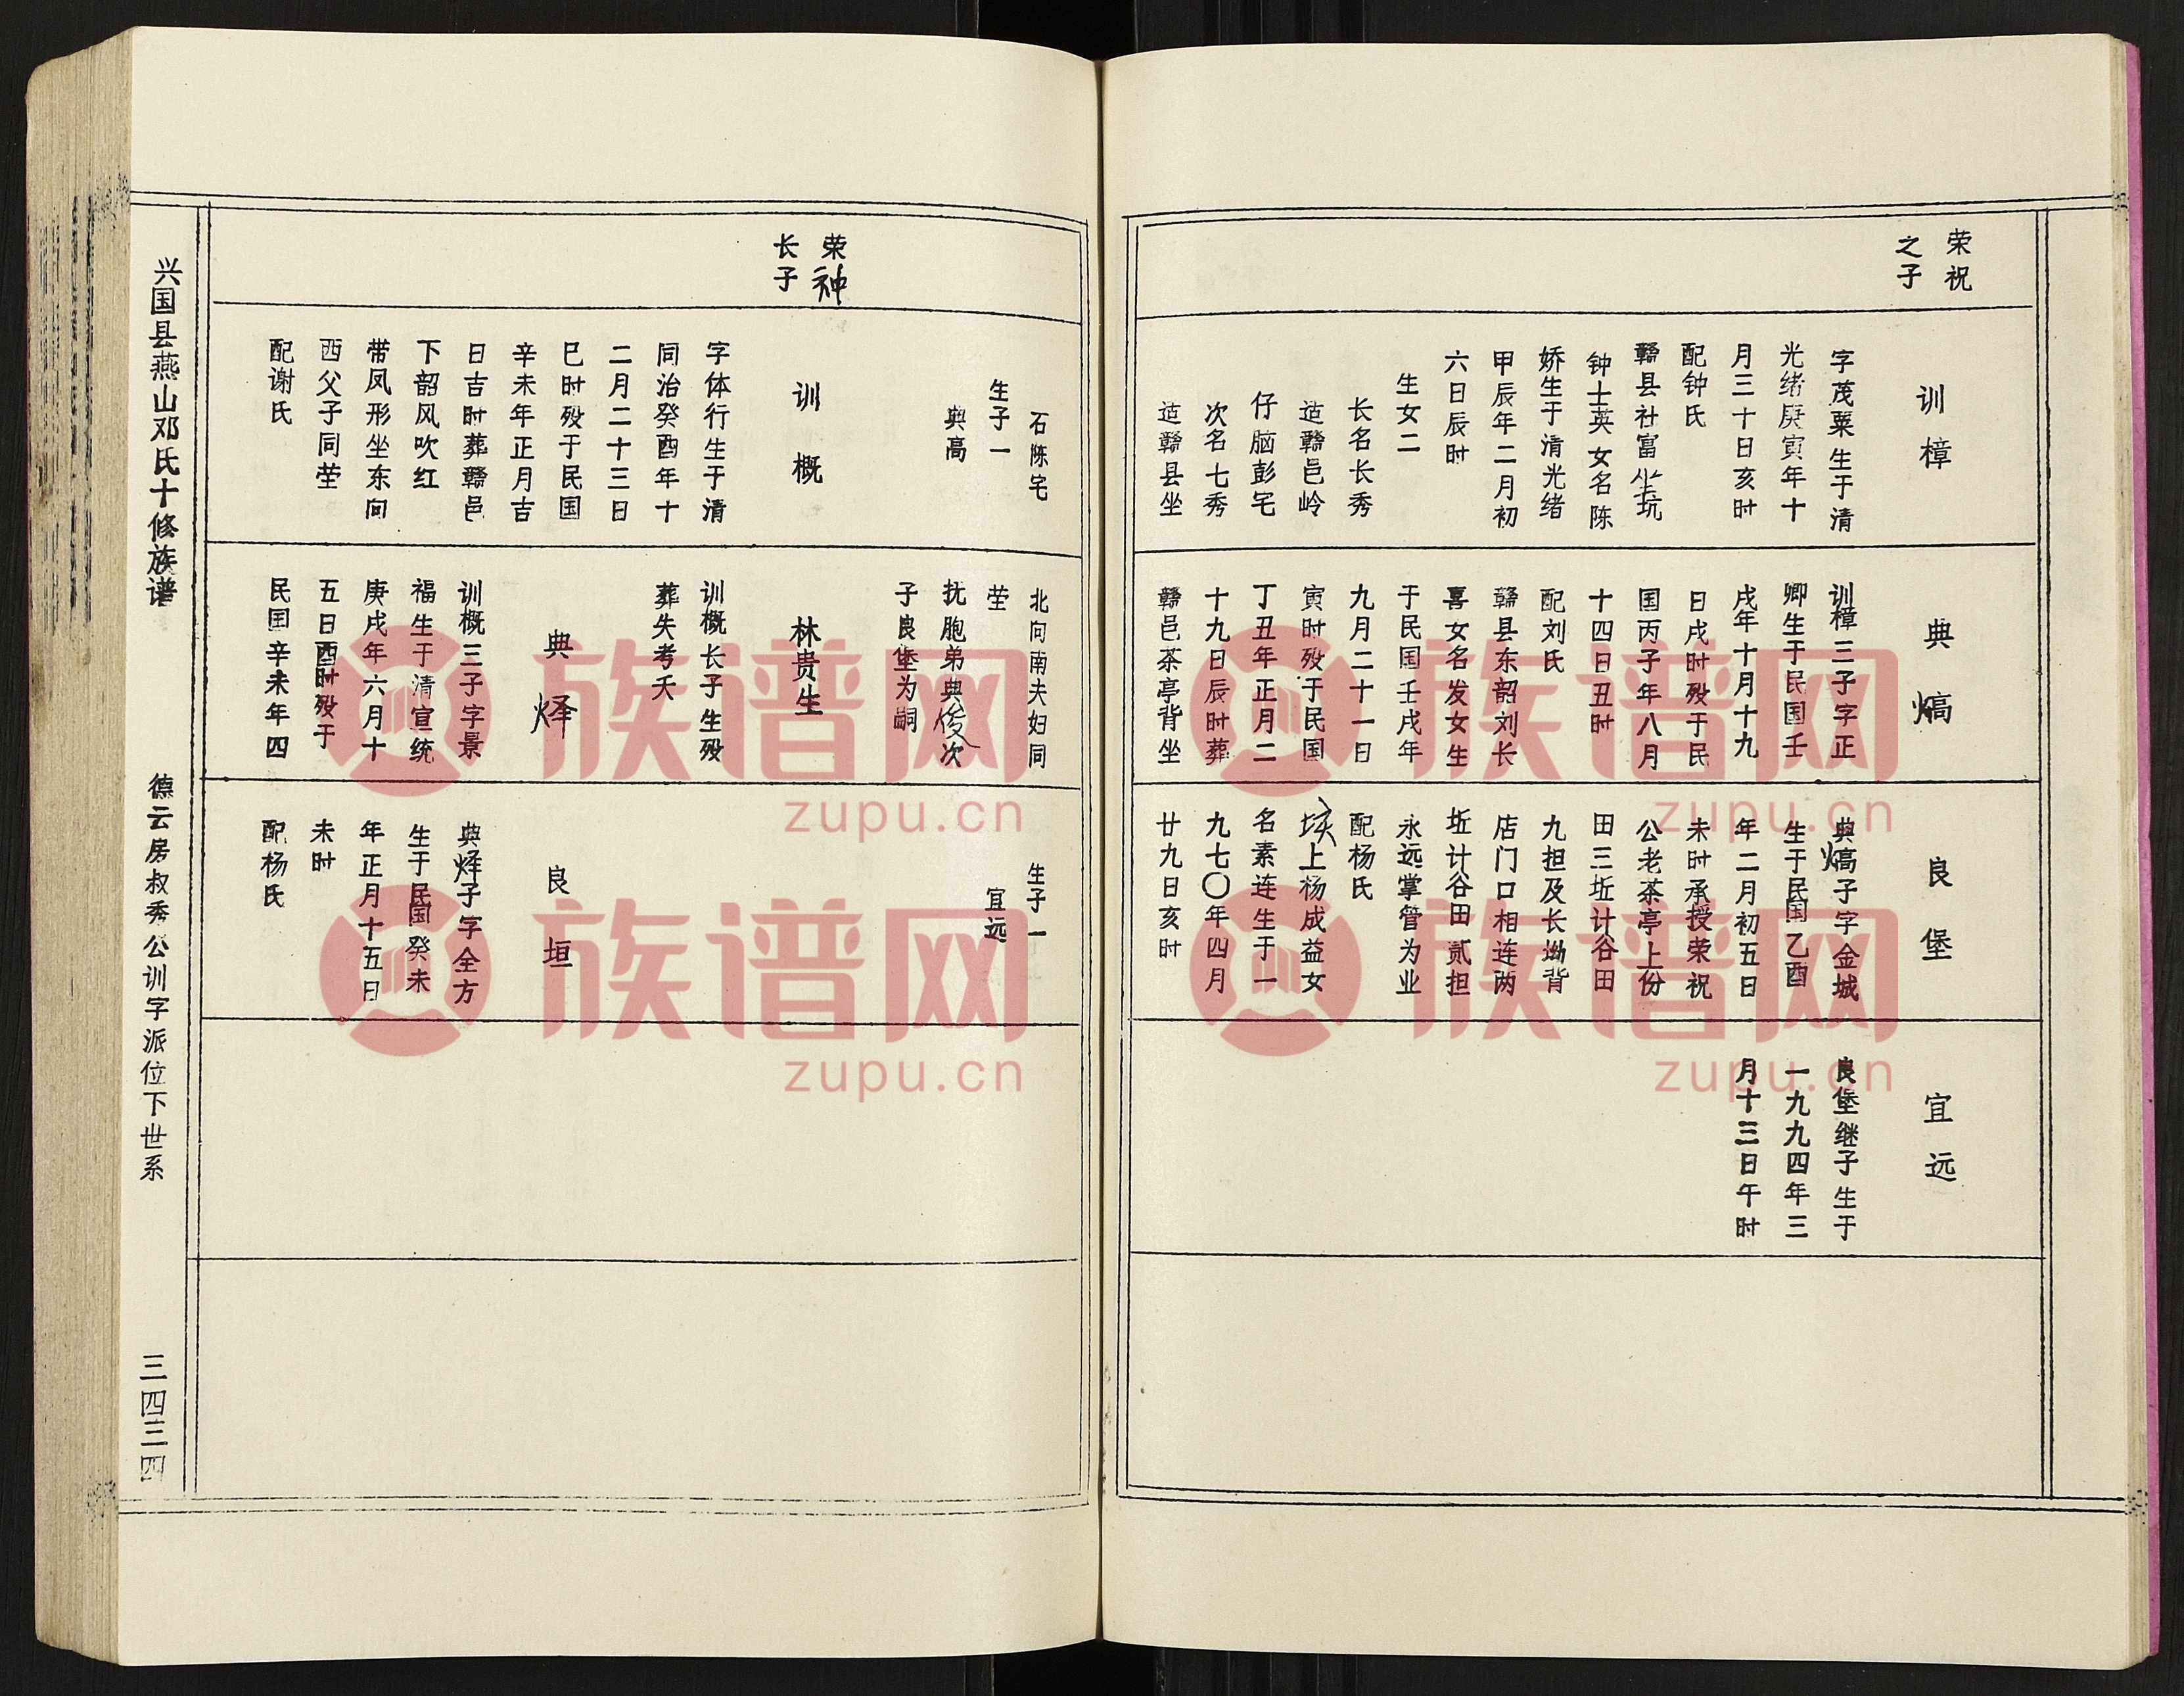 荣祝
之子
训樟
字茂粟生于清
光绪庚寅年十
月三十日亥时
配钟氏
赣县社富坐坑
钟士英女名陈
娇生于清光绪
甲辰年二月初
六日辰时
生女二
长名长秀
适赣邑岭
仔脑彭宅
次名七秀
适赣县坐
典熇
训樟三子字正
卿生于民国壬
戌年十月十九
日戌时殁于民
国丙子年八月
十四日丑时
配刘氏
赣县东韶刘长
喜女名发女生
于民国壬戌年
九月二十一日
寅时殁于民国
丁丑年正月二
十九日辰时葬
赣邑茶亭背坐
良堡
典熇子字金城
生于民国乙酉
年二月初五日
未时承授荣祝
公老茶亭上份
田三坵计谷田
九担及长坳背
店门口相连两
坵计谷田贰担
永远掌管为业
配杨氏
上杨成益女
名素连生于一
九七〇年四月
廿九日亥时
宜远
良堡继子生于
一九九四年三
月十三日午时
石陈宅
生子一
典高
北向南夫妇同
茔
抚胞弟典俊次
子良堡为嗣
生子一
宜远
荣神
长子
训概
字体行生于清
同治癸酉年十
二月二十三日
巳时殁于民国
辛未年正月吉
日吉时葬赣邑
下韶风吹红
带凤形坐东向
西父子同茔
配谢氏
林贵生
训概长子生殁
葬失考夭
典烨
训概三子字景
福生于清宣统
庚戌年六月十
五日酉时殁于
民国辛未年四
良垣
典烨子字全方
生于民国癸未
年正月十五日
未时
配杨氏
兴国县燕山邓氏十修族谱
德云房叔秀公训字派位下世系
三四三四
族谱网
zupu.cn
族谱网
zupu.cn
族谱网
zupu.cn
族谱网
zupu.cn